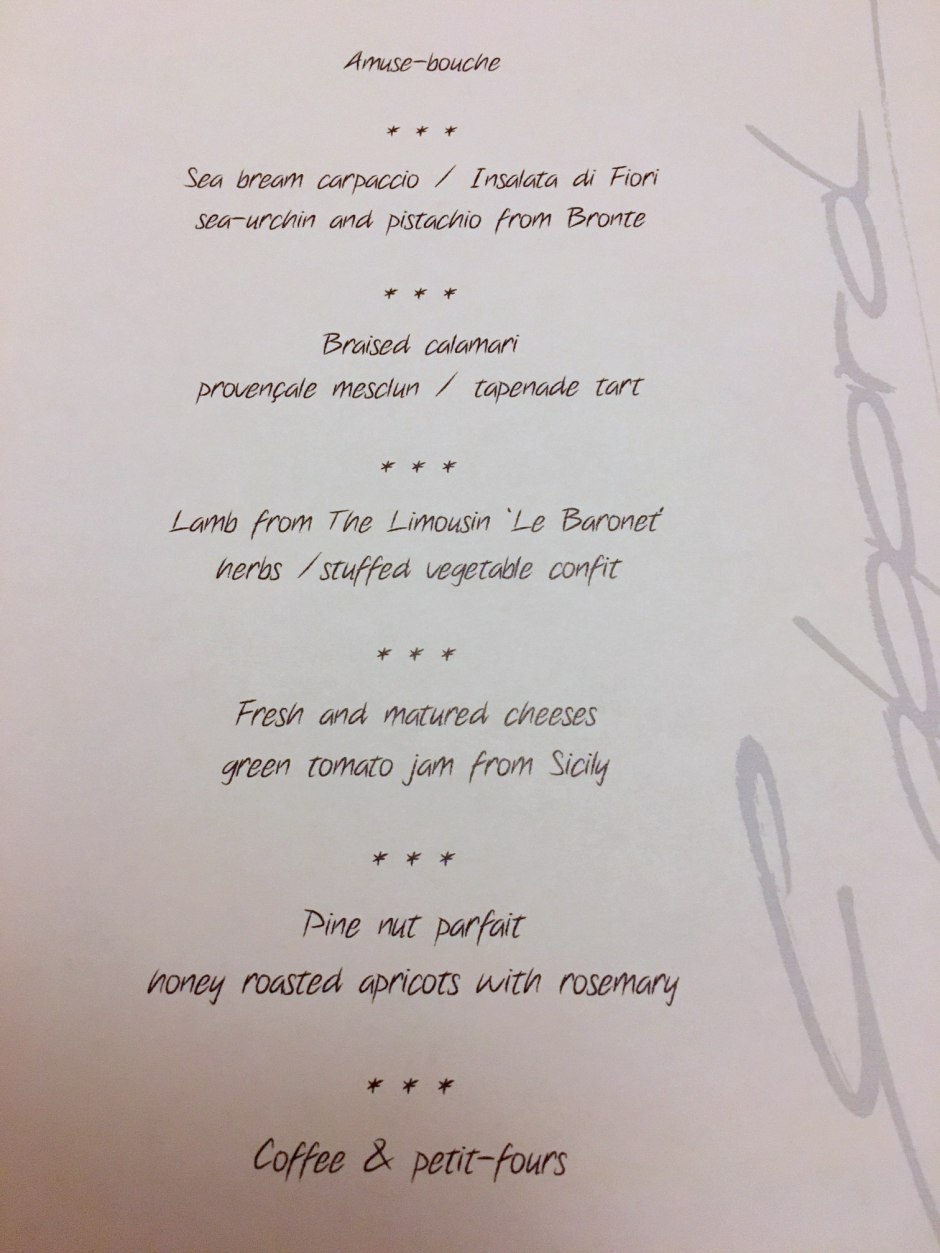 Amuse-bouche
* * *
Sea bream carpaccio / Insalata di Fiori
sea-urchin and pistachio from Bronte
* * *
Braised calamari
provençale mesclun / tapenade tart
* * *
Lamb from The Limousin 'Le Baronet'
herbs / stuffed vegetable confit
* * *
Fresh and matured cheeses
green tomato jam from Sicily
* * *
Pine nut parfait
honey roasted apricots with rosemary
* * *
Coffee & petit-fours